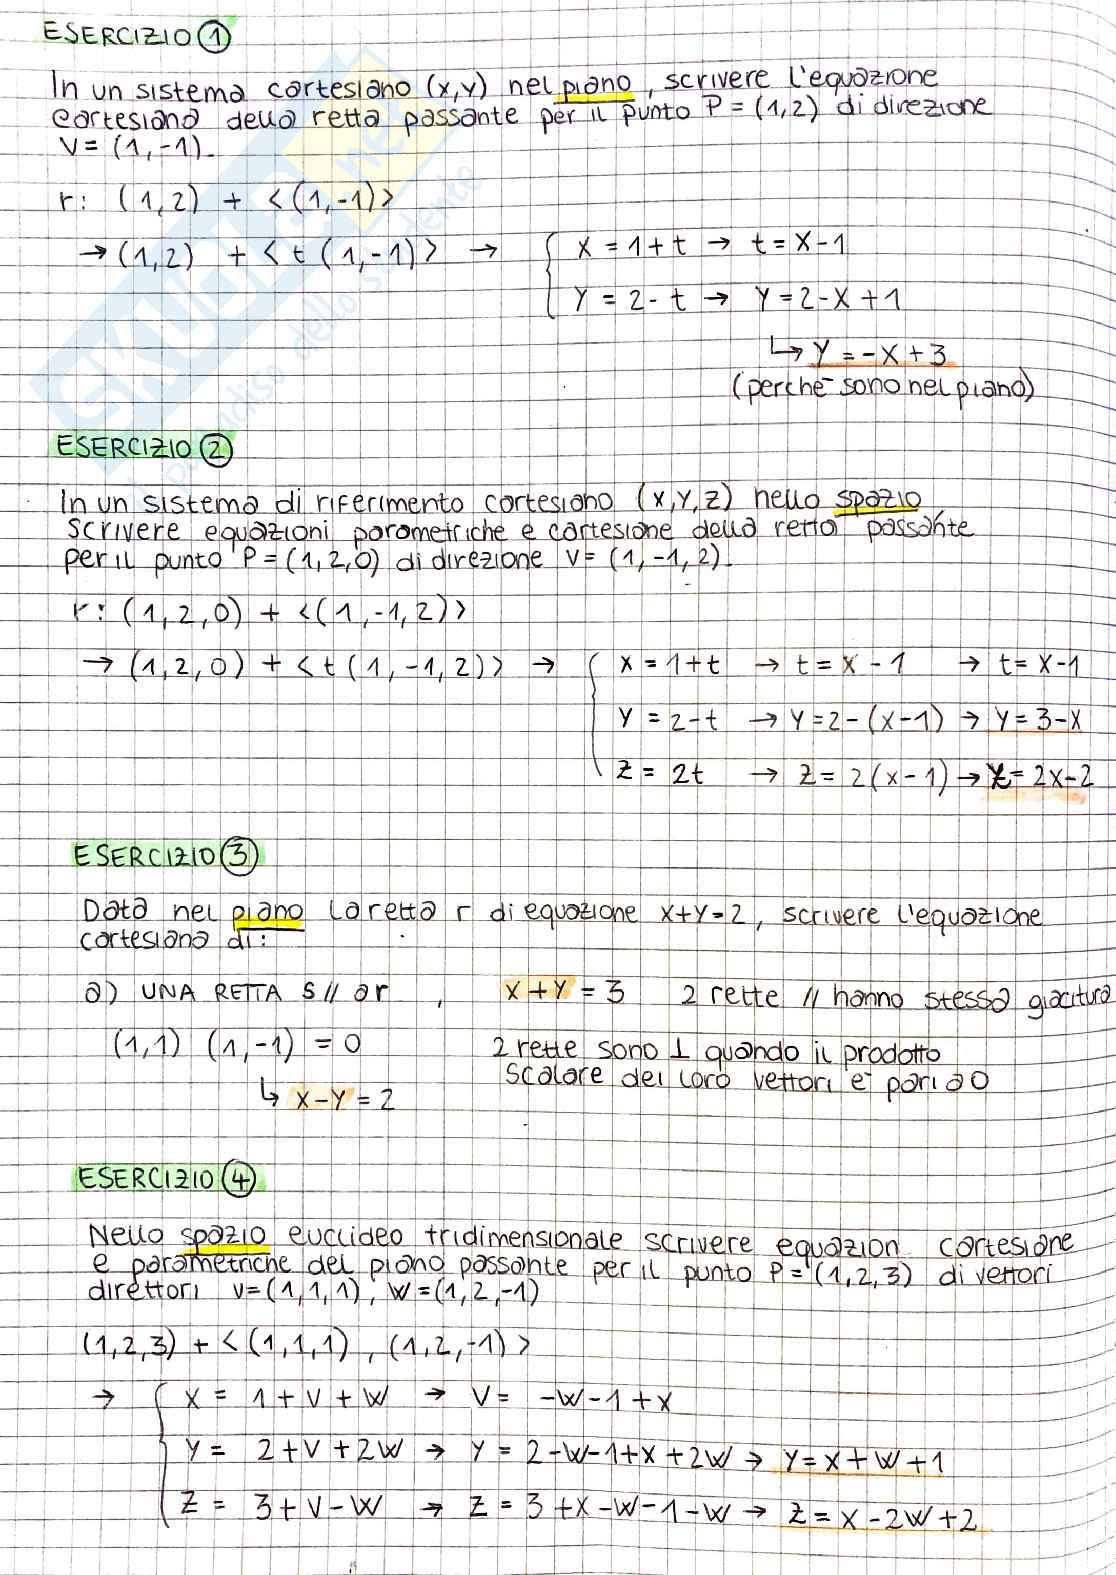 ESERCIZIO 1
In un sistema cartesiano (x,y) nel piano, scrivere l'equazione
cartesiana della retta passante per il punto P = (1,2) di direzione
V = (1,-1).
r: (1,2) + <(1,-1)>
→ (1,2) + <t(1,-1)> → { x = 1+t → t = x-1
y = 2-t → y = 2-x+1
↳ y = -x+3
(perchè sono nel piano)
ESERCIZIO 2
In un sistema di riferimento cartesiano (x,y,z) nello spazio,
scrivere equazioni parametriche e cartesiane della retta passante
per il punto P = (1,2,0) di direzione V = (1,-1,2).
r: (1,2,0) + <(1,-1,2)>
→ (1,2,0) + <t(1,-1,2)> → { x = 1+t → t = x-1 → t = x-1
y = 2-t → y = 2-(x-1) → y = 3-x
z = 2t → z = 2(x-1) → z = 2x-2
ESERCIZIO 3
Data nel piano la retta r di equazione x+y=2, scrivere l'equazione
cartesiana di:
a) UNA RETTA S // a r , x+y = 3 2 rette // hanno stessa giacitura
(1,1) (1,-1) = 0 2 rette sono ⊥ quando il prodotto
scalare dei loro vettori è pari a 0
↳ x-y = 2
ESERCIZIO 4
Nello spazio euclideo tridimensionale scrivere equazion cartesiane
e parametriche del piano passante per il punto P = (1,2,3) di vettori
direttori V = (1,1,1), W = (1,2,-1)
(1,2,3) + <(1,1,1), (1,2,-1)>
→ { x = 1+v+w → v = -w-1+x
y = 2+v+2w → y = 2-w-1+x+2w → y = x+w+1
z = 3+v-w → z = 3+x-w-1-w → z = x-2w+2
SKUOLA.net
il paradiso dello studente